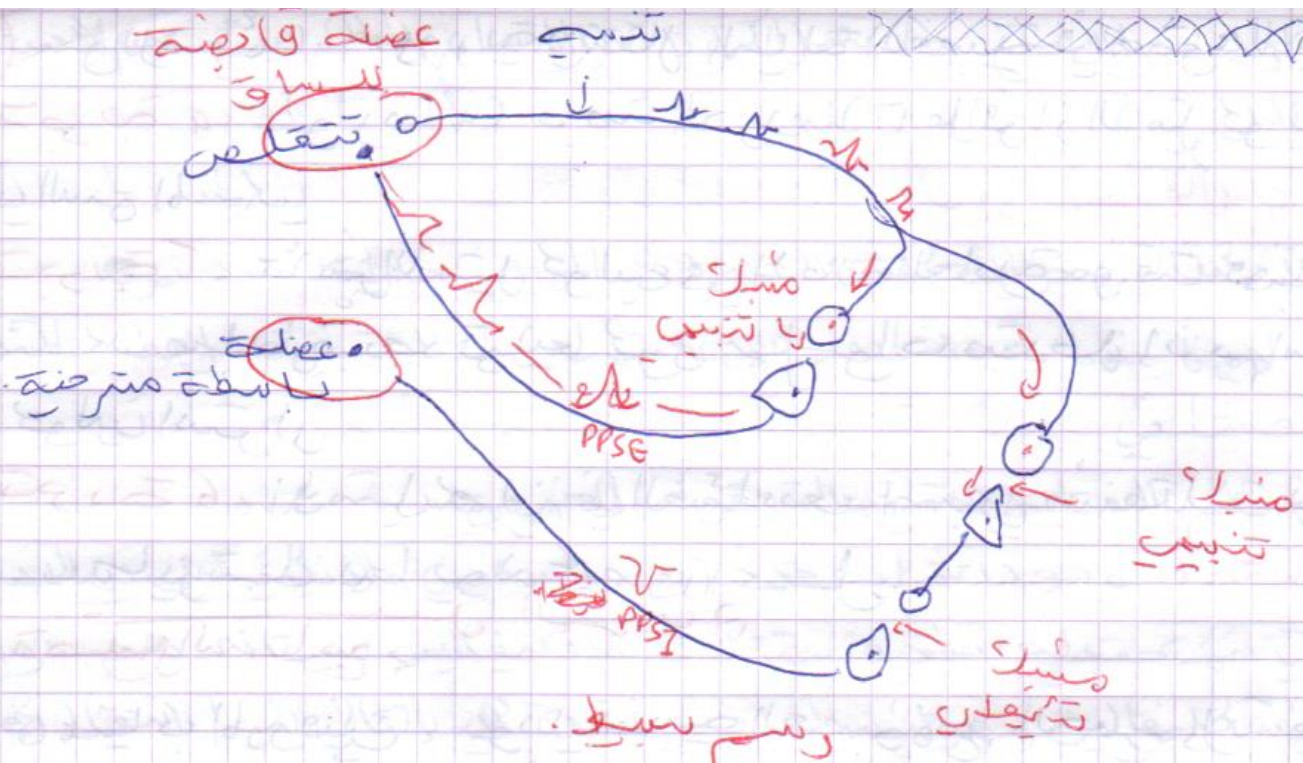 تنبيه
عضلة قابضة
للساق
تتقلص
مشبك
تنبيهي
عضلة
باسطة مسترخية.
PPSE
مشبك
تنبيهي
PPSI
مشبك
تثبيطي
رسم بسيط.